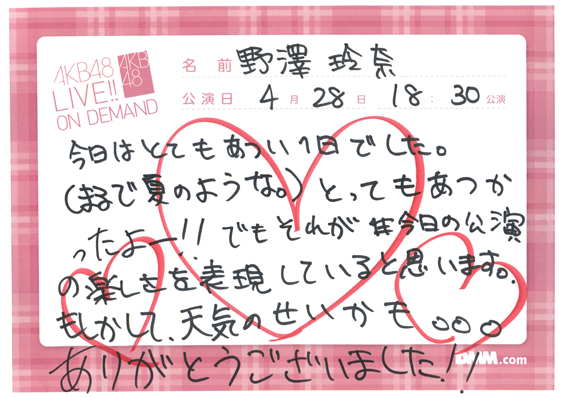 AKB48
LIVE!!
ON DEMAND
AKB
48
名 前 野澤 玲奈
公演日 4月 28日 18:30公演
今日はとてもあつい1日でした。
(まるで夏のような。)とってもあつか
ったよー!!でもそれが今日の公演
の楽しさを表現していると思います。
もしかして、天気のせいかも。。。
ありがとうございました!!
DMM.com